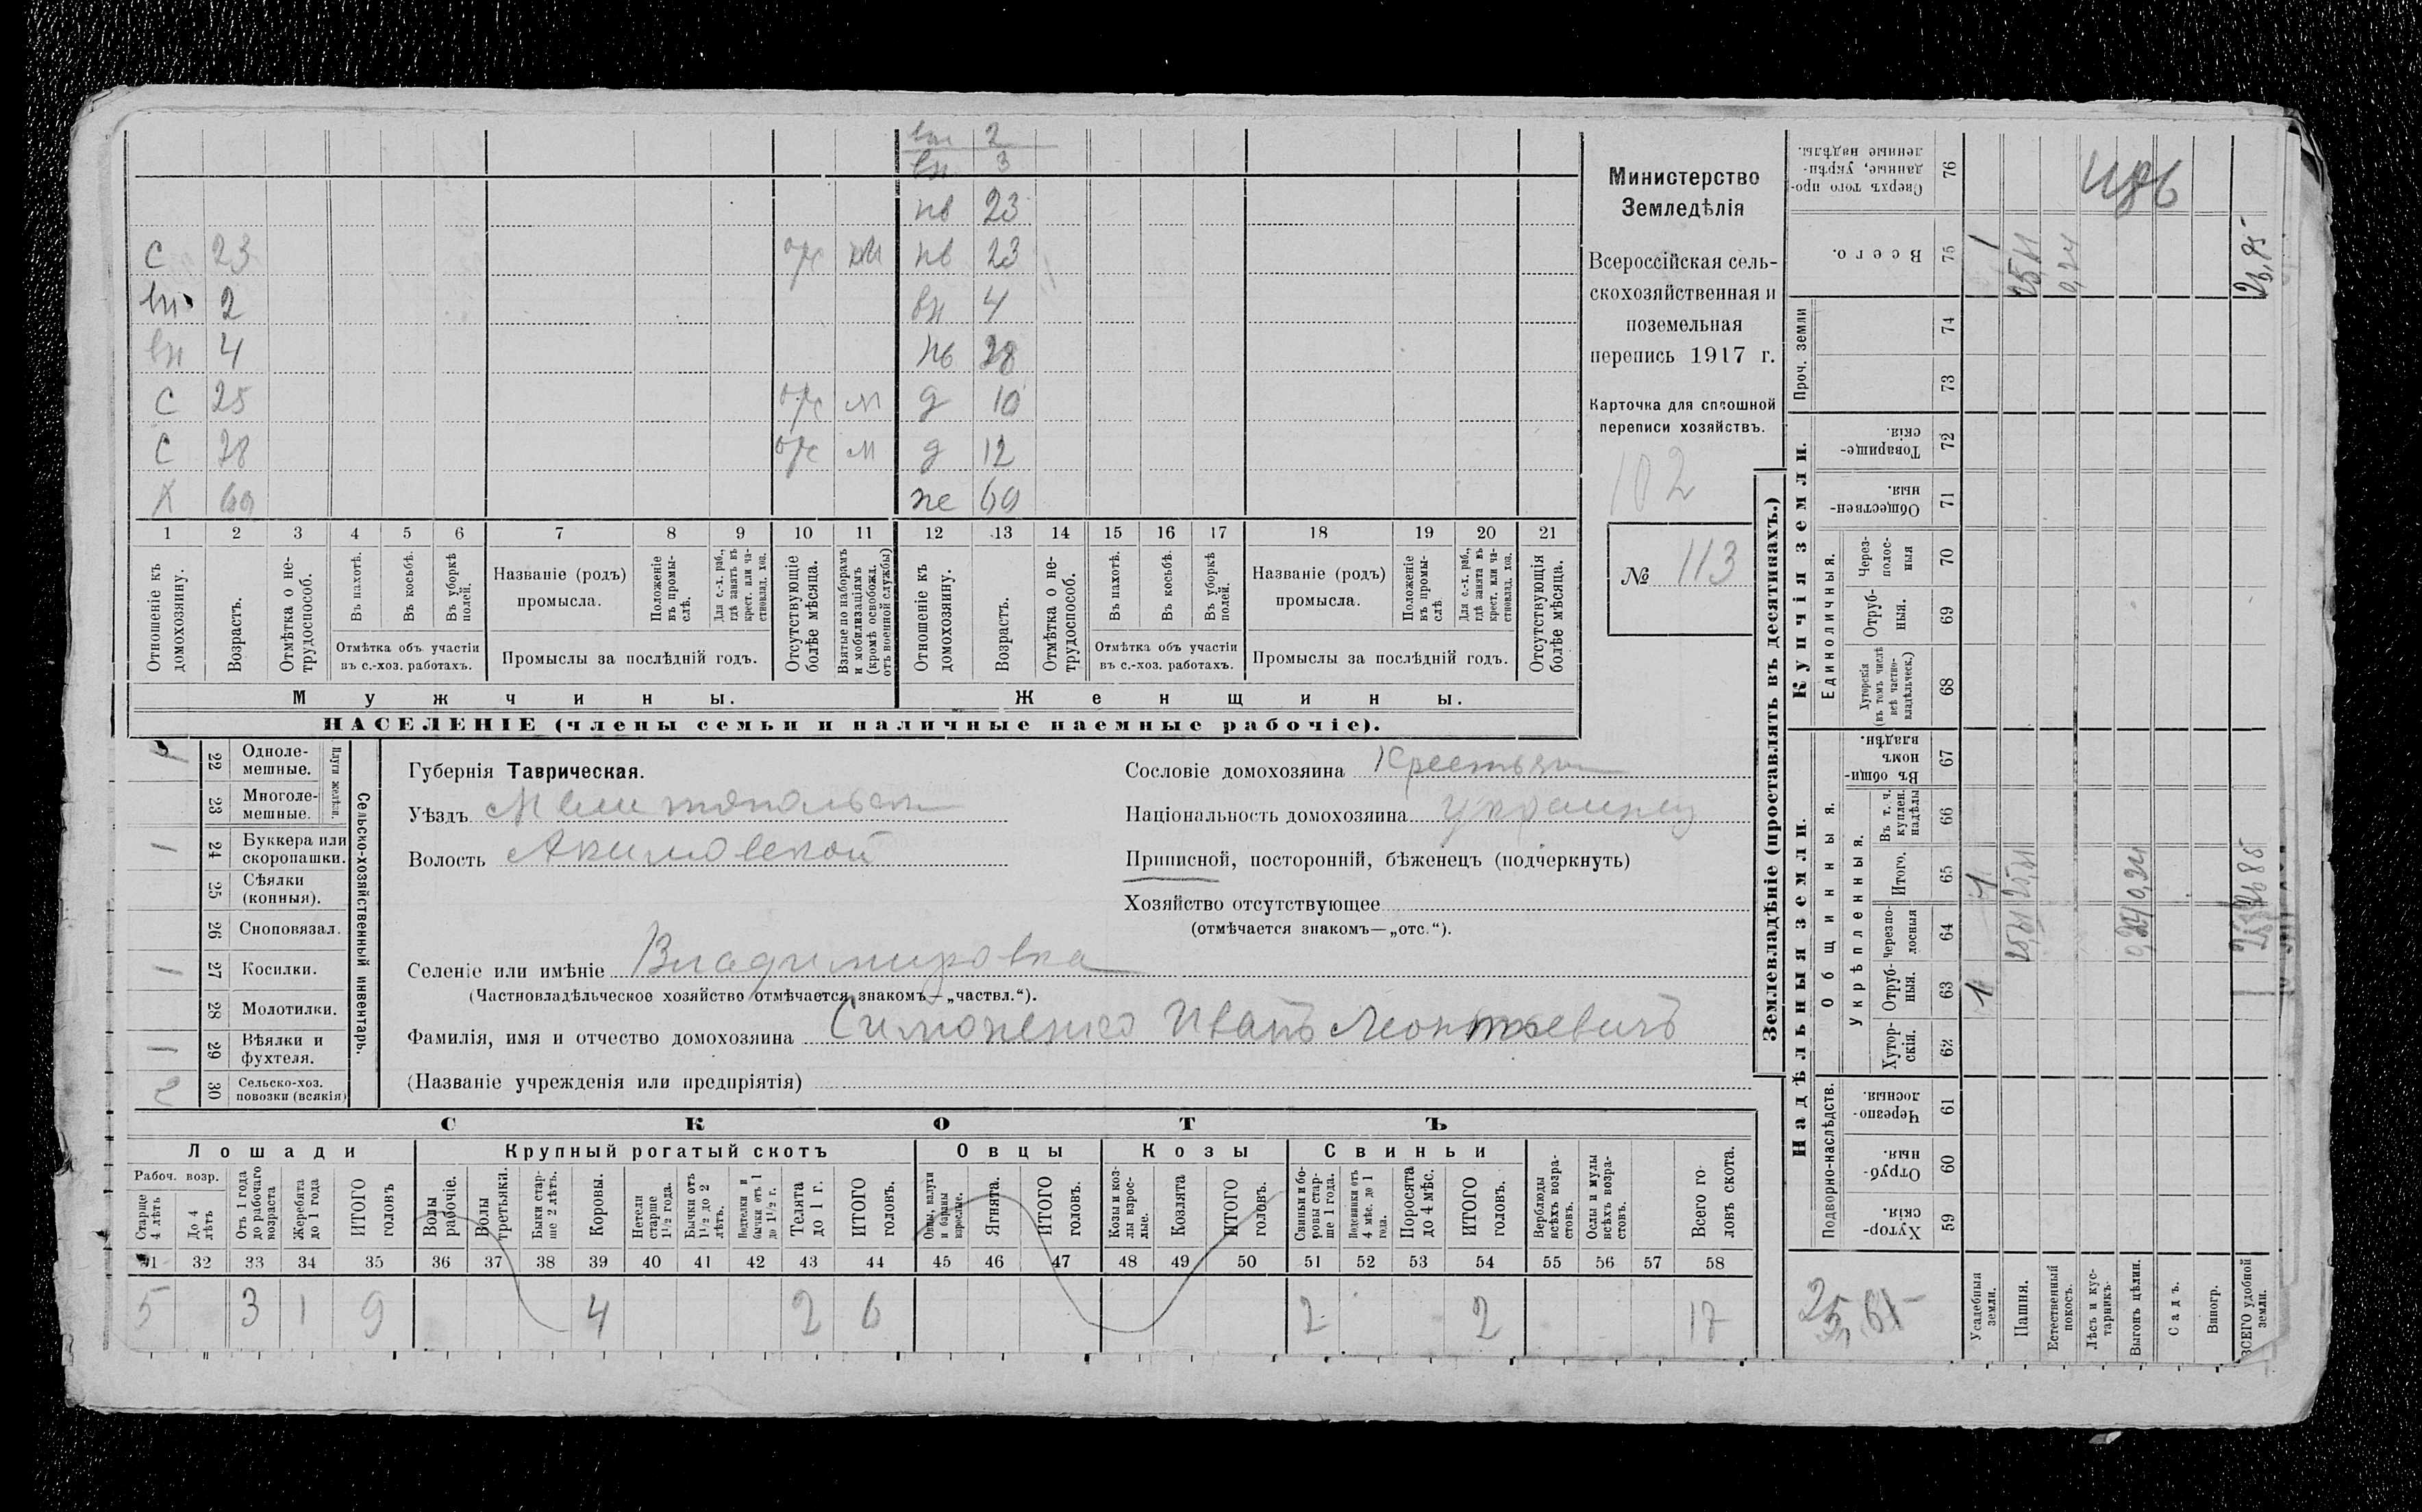 вн 2
вн 3
нв 23
С 23 отс м нв 23
вн 2 вн 4
вн 4 нв 28
С 25 отс м д 10
С 28 отс м д 12
Х 69 же 69
1 2 3 4 5 6 7 8 9 10 11 12 13 14 15 16 17 18 19 20 21
Отношеніе къ домохозяину.
Возрастъ.
Отмѣтка о нетрудоспособ.
Въ пахотѣ.
Въ косьбѣ.
Въ уборкѣ полей.
Отмѣтка объ участіи
въ с.-хоз. работахъ.
Названіе (родъ)
промысла.
Положеніе въ промыслѣ.
Для с.-х. раб., гдѣ занятъ въ крест. или частновлад. хоз.
Промыслы за послѣдній годъ.
Отсутствующіе болѣе мѣсяца.
Взятые по наборамъ и мобилизаціямъ (кромѣ освобожд. отъ военной службы)
Отношеніе къ домохозяину.
Возрастъ.
Отмѣтка о нетрудоспособ.
Въ пахотѣ.
Въ косьбѣ.
Въ уборкѣ полей.
Отмѣтка объ участіи
въ с.-хоз. работахъ.
Названіе (родъ)
промысла.
Положеніе въ промыслѣ
Для с.-х. раб., гдѣ занята въ крест. или частновлад. хоз.
Промыслы за послѣдній годъ.
Отсутствующія болѣе мѣсяца.
Мужчины. Женщины.
НАСЕЛЕНІЕ (члены семьи и наличные наемные рабочіе).
Министерство
Земледѣлія
Всероссійская сель-
скохозяйственная и
поземельная
перепись 1917 г.
Карточка для сплошной
переписи хозяйствъ.
102
№ 113
Сельско-хозяйственный инвентарь.
Плуги желѣзн.
1 22 Одноле-
мешные.
23 Многоле-
мешные.
1 24 Буккера или
скоропашки.
25 Сѣялки
(конныя).
26 Сноповязал.
1 27 Косилки.
28 Молотилки.
1 29 Вѣялки и
фухтеля.
2 30 Сельско-хоз.
повозки (всякія)
Губернія Таврическая.
Уѣздъ Мелитопольск
Волость Акимовской
Сословіе домохозяина Крестьян
Національность домохозяина украинец
Приписной, посторонній, бѣженецъ (подчеркнуть)
Хозяйство отсутствующее
(отмѣчается знакомъ—„отс.“).
Селеніе или имѣніе Владимировка
(Частновладѣльческое хозяйство отмѣчается знакомъ—„частвл.“).
Фамилія, имя и отчество домохозяина Симоненко Иванъ Леонтьевичъ
(Названіе учрежденія или предпріятія)
СКОТЪ
Лошади Крупный рогатый скотъ Овцы Козы Свиньи
Рабоч. возр.
Старше 4 лѣтъ
До 4 лѣтъ
Отъ 1 года до рабочаго возраста
Жеребята до 1 года
ИТОГО головъ
Волы рабочіе.
Волы третьяки.
Быки старше 2 лѣтъ.
Коровы.
Нетели старше 1½ года.
Бычки отъ 1½ до 2 лѣтъ.
Подтелки и бычки отъ 1 до 1½ г.
Телята до 1 г.
ИТОГО головъ.
Овцы, валухи и бараны взрослые.
Ягнята.
ИТОГО головъ.
Козы и козлы взрослые.
Козлята
ИТОГО головъ.
Свиньи и боровы старше 1 года.
Подсвинки отъ 4 мѣс. до 1 года.
Поросята до 4 мѣс.
ИТОГО головъ.
Верблюды всѣхъ возрастовъ.
Ослы и мулы всѣхъ возрастовъ.
Всего головъ скота.
31 32 33 34 35 36 37 38 39 40 41 42 43 44 45 46 47 48 49 50 51 52 53 54 55 56 57 58
5 3 1 9 4 2 6 2 2 17
Землевладѣніе (проставлять въ десятинахъ.)
Надѣльныя земли. Купчія земли. Проч. земли
Подворно-наслѣдств.
Общинныя.
Укрѣпленныя.
Единоличныя.
Хуторскія. 59
Отрубныя. 60
Черезполосныя. 61
Хуторскія. 62
Отрубныя. 63
Черезполосныя 64
Итого. 65
Въ т. ч. куплен. надѣлы 66
Въ общинномъ владѣн. 67
Хуторскія (въ томъ числѣ всѣ частновладѣльческ.) 68
Отрубныя. 69
Черезполосныя 70
Общественныя. 71
Товарищескія. 72
73
74
Всего. 75
Сверхъ того проданные, укрѣпленные надѣлы. 76
Усадебныя земли. 1 1 1
Пашня. 25,61 25,61 25,61
Естественный покосъ. 0,24
Лѣсъ и кустарникъ.
Выгонъ цѣлин. 0,24 0,24
Садъ.
Виногр.
ВСЕГО удобной земли. 26,85 26,85
25,61